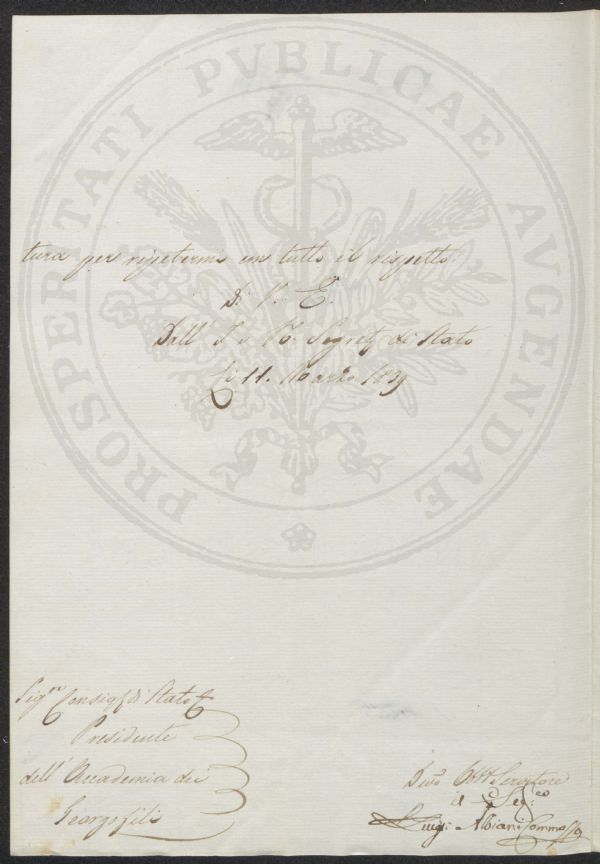 PROSPERITATI PVBLICAE AVGENDAE
tura per ripetermi con tutto il rispetto
D. V. E.
Dall I. e R. Segret. di Stato
Li 11. Marzo 1839
Sig.re Consigl. di Stato
Presidente
dell' Accademia dei
Georgofili
Dev.o Obb. Servitore
il Seg.
Luigi Albiani Tommasi